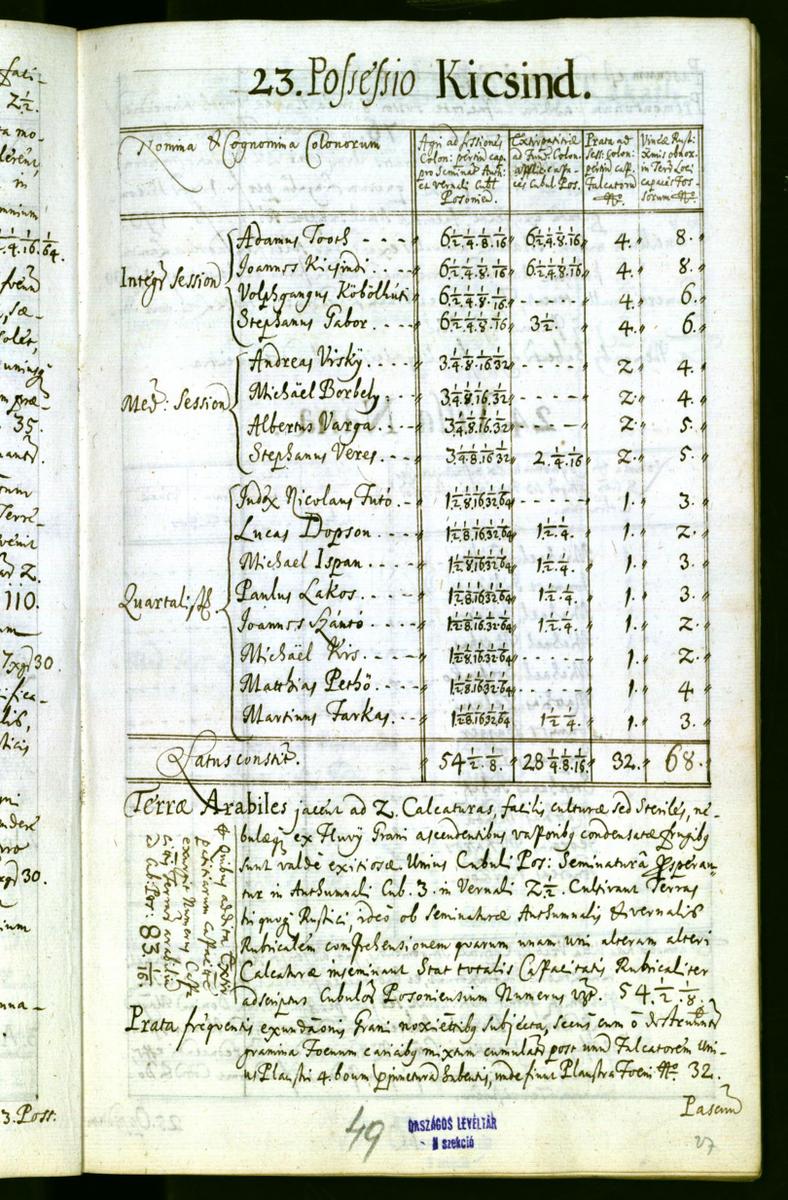 23. Possessio Kicsind.
Nomina & Cognomina Colonorum
Agri ad sessiones
Colon: pertin. cap.
pro Seminat. Aut:
et vernali Cub:
Posonien.
ad Fund. Colon.
applic. capa
ces Cubul. Pos.
Prata ad
Sess: Colon:
pertin. cap.
Falcatorum
No.
Vineæ Rusti
obnox.
in Terr. Loci
capaces Fos-
sorum No.
Integr. Session
Adamus Tooth - - - 6 1/2.1/4.1/8.1/16 6 1/2.1/4.1/8.1/16 4. 8.
Joannes Kicsindi . . 6 1/2.1/4.1/8.1/16 6 1/2.1/4.1/8.1/16 4. 8.
Volphgangus Köbölkuti 6 1/2.1/4.1/8.1/16 - - - - - 4. 6.
Stephanus Gabor . . . 6 1/2.1/4.1/8.1/16 3 1/2. 4. 6.
Med: Session
Andreas Visky . . . 3 1/4.1/8.1/16.1/32 - - - - 2 4.
Michäel Borbely . . 3 1/4.1/8.1/16.1/32 - - - - 2. 4.
Albertus Varga . . . 3 1/4.1/8.1/16.1/32 - - - - 2. 5.
Stephanus Veres . . . 3 1/4.1/8.1/16.1/32 2. 1/4.1/16 2. 5.
Quartalist
Judex Nicolaus Futó . . 1 1/2.1/8.1/16.1/32.1/64 - - - - - 1. 3.
Lucas Dopson . . . 1 1/2.1/8.1/16.1/32.1/64 1 1/2.1/4. 1. 2.
Michael Ispan . . . 1 1/2.1/8.1/16.1/32.1/64 1 1/2.1/4. 1. 3.
Paulus Lakos . . . 1 1/2.1/8.1/16.1/32.1/64 1 1/2.1/4. 1. 3.
Joannes Szántó . . . 1 1/2.1/8.1/16.1/32.1/64 1 1/2.1/4. 1. 2.
Michäel Kis . . . 1 1/2.1/8.1/16.1/32.1/64 - - - - - 1. 2.
Matthias Pethö . . . 1 1/2.1/8.1/16.1/32.1/64 - - - - - 1. 4
Martinus Farkas . . . 1 1/2.1/8.1/16.1/32.1/64 1 1/2.1/4. 1. 3.
Latus constit. 54 1/2.1/8. 28 1/4.1/8.1/16. 32. 68.
Terræ Arabiles jacent ad 2. Calcaturas, facilis culturæ sed Steriles, ne-
bulæq ex Fluvy Grani ascendentibus vaporibq condensatæ frugibq
sunt valde exitiosæ. Unius Cubuli Pos: Seminatura speran-
tur in Authumnali Cub. 3. in Vernali 2 1/2. Cultivant Terras
Rustici ideo ob seminaturæ Authumnalis & vernalis
Rubricalem comprehensionem quarum unam uni alteram alteri
Calcaturæ inseminant Stat totalis Capacitatis Rubricaliter
adscriptus Cubulor Posoniensium Numerus 54. 1/2.1/8.
& Quibus additis
partiarum Capacitate
exurgit Numerus Capa
arabiliu
Cub: Pos: 83 1/16.
Prata frequentis exundaonis Grani subjecta,
gramina Foenum caricibq mixtum post unu Falcatorem Uni-
us Plaustri 4. boum subentis, inde fiunt Plaustra Foeni No. 32.
Pascuu
49
ORSZÁGOS LEVÉLTÁR
- II szekció
27